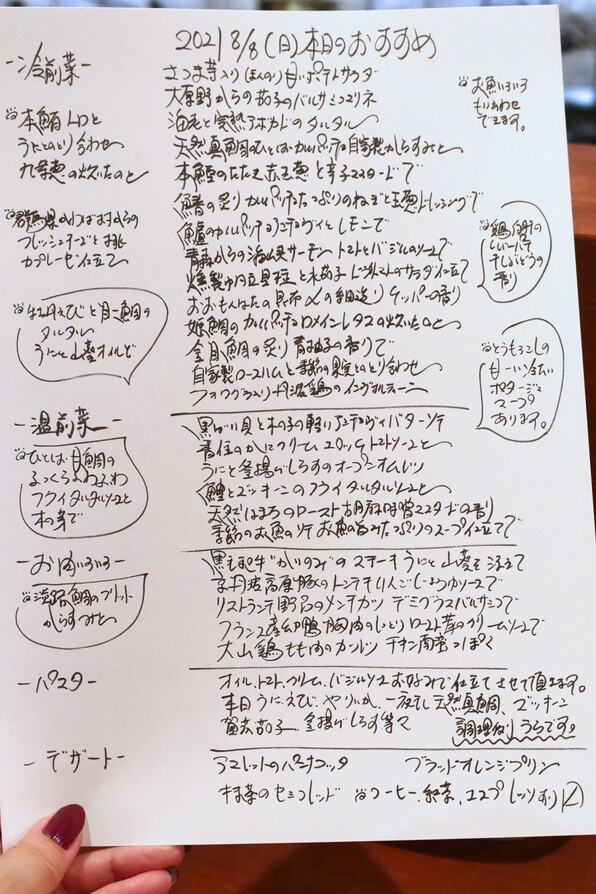 2021 8/8(日)本日のおすすめ
-冷前菜-
さつま芋入りほんのり甘いポテトサラダ
大原野からの茄子のバルサミコマリネ
海老と完熟アボカドのタルタル
天然真鯛のひとはカルパッチョ自家製からすみと
本鰹のたたき 赤玉葱と辛子マスタードで
鯖の炙りカルパッチョたっぷりのねぎと玉葱ドレッシングで
鱸のカルパッチョ アンディーヴィとレモンで
青森からの海峡サーモン トマトとバジルのソースで
燻製 と水茄子 トマトのサラダ仕立て
おおもんはたの昆布〆の細造り ケッパーの香り
姫鯛のカルパッチョ ロメインレタスの炊いたんと
金目鯛の炙り 青柚子の香りで
自家製ロースハムと季節の果実とのとり合わせ
フォワグラ入り丹波鶏のインヴォルティーニ
お魚いろいろ
もりあわせ
できます。
本鮪トロと
うにとのとり合わせ
九条葱の炊いたのと
群馬県 からの
フレッシュチーズと桃の
カプレーゼ仕立て
牡丹えびと目一鯛の
タルタル
うにと山葵オイルで
鶏白肝の
レバーパテ
干しぶどうの
香り
とうもろこしの
甘ーい冷たい
ポタージュ
スープ
あります。
-温前菜-
黒 貝と木の子の軽いアンチョヴィバターソテー
香住のかにクリームコロッケ トマトソースと
うにと釜揚げしらすのオープンオムレツ
鱧とズッキーニのフライタルタルソースと
天然はまちのロースト胡麻味噌マスタードの香り
季節のお魚のソテー お魚の旨みたっぷりのスープ仕立てで
ひとしお甘鯛の
ふっくらふわふわ
フライタルタルソースと
木の芽で
-お肉いろいろ-
黒毛和牛“かいのみ”のステーキ うにと山葵を添えて
京丹波高原豚のトンテキ りんごしょうゆソースで
リストランテ野呂のメンチカツ デミグラスバルサミコで
フランス産 鴨胸肉のしっとりロースト茸のクリームソースで
大山鶏もも肉のカツレツ チキン南蛮っぽく
淡路鯛のフリット
からすみと
-パスタ-
オイル、トマト、クリーム、バジルソースとお好みで仕立てさせて頂きます。
本日 うに、えび、やりいか、一夜干し天然真鯛、ズッキーニ
賀茂茄子、釜揚げしらす等々
-デザート-
アマレットのパンナコッタ ブラッドオレンジプリン
抹茶のセミフレッド コーヒー、紅茶、エスプレッソあり〼